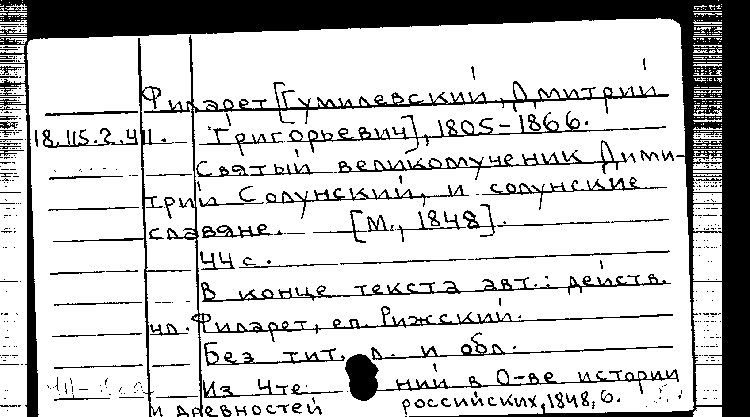 Филарет [Гумилевский, Дмитрий
18.115.2.411. Григорьевич], 1805-1866.
Святый великомученик Дими-
трий Солунский, и солунские
славяне. [М., 1848].
44 с.
В конце текста авт.: действ.
чл. Филарет, еп. Рижский.
Без тит. л. и обл.
Из Чте ний в О-ве истории
и древностей российских, 1848, 6.